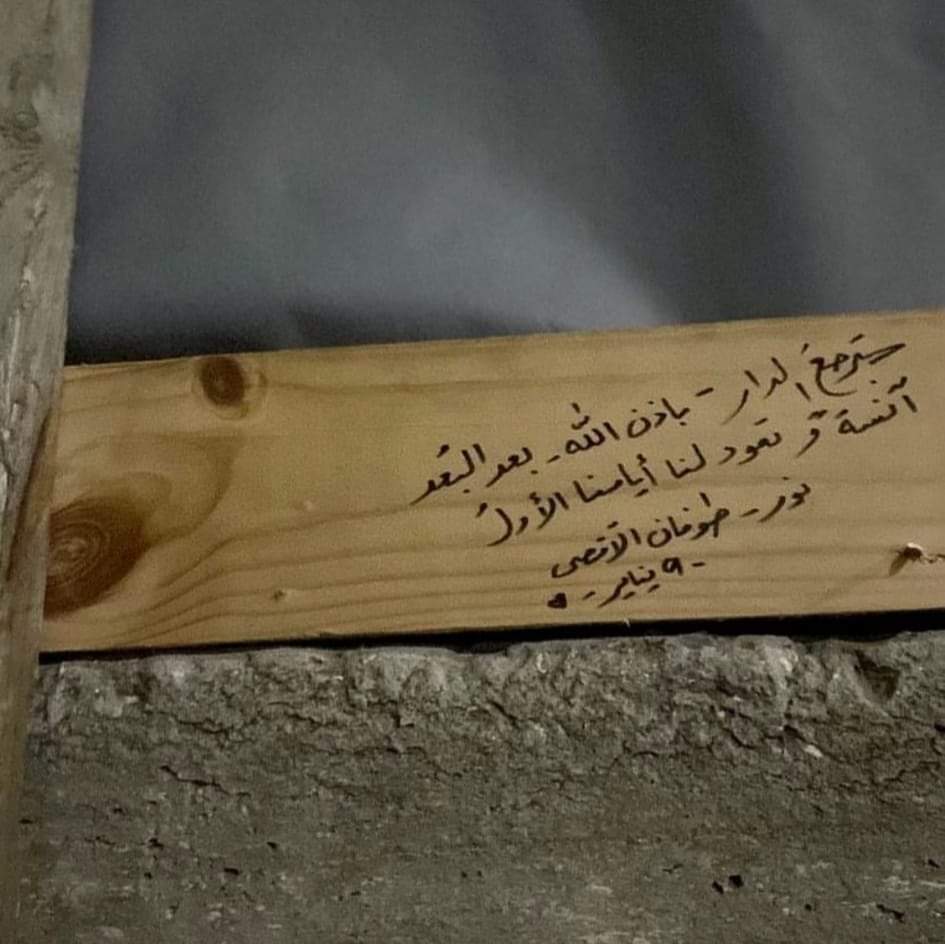 سترجعُ الدار - باذن الله - بعد البُعد
آنسة و تعود لنا أيامنا الأولُ
نور - طوفان الأقصى
- ٩ يناير - ♥